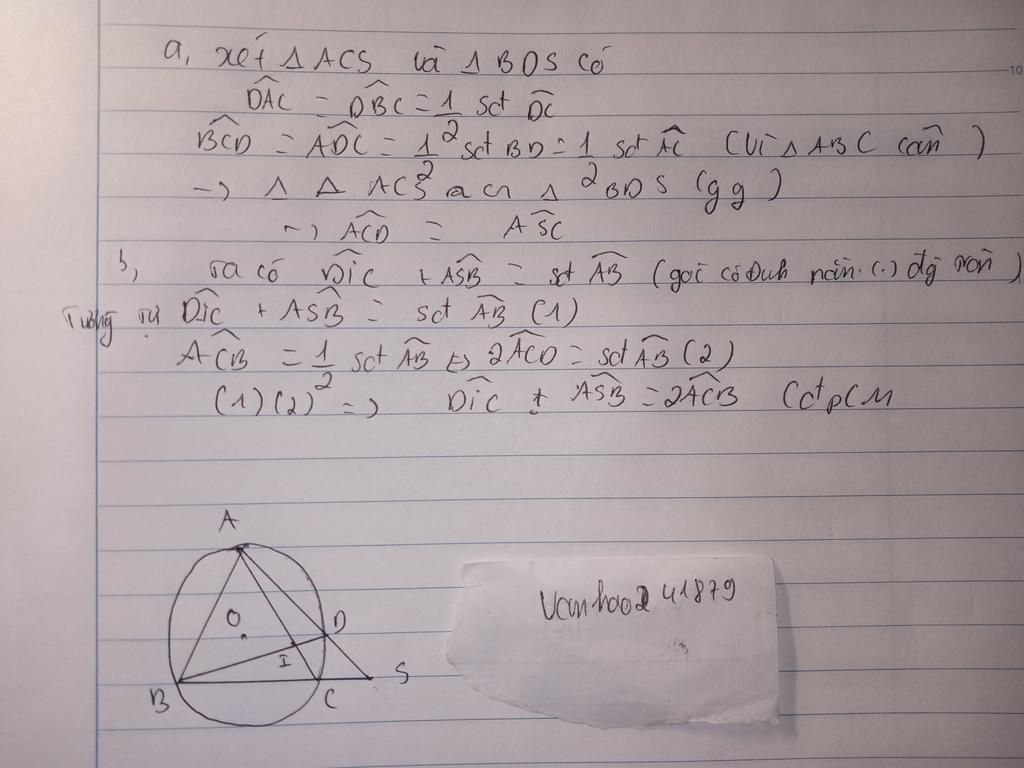 a, xét Δ ACS và Δ BDS có
DAC = DBC = 1/2 sđt DC
BCD = ADC = 1/2 sđt BD = 1/2 sđt AC (Vì Δ ABC cân)
→ Δ Δ ACS Δ BDS (gg)
→ ACD = ASC
b, ta có DIC + ASB = sđt AB
Tương tự DIC + ASB = sđt AB (1)
ACB = 1/2 sđt AB ⇔ 2ACD = sđt AB (2)
(1)(2) => DIC + ASB = 2ACB (đtpCM
A
O
D
I
S
B
C
Vanhoo2 41879
10